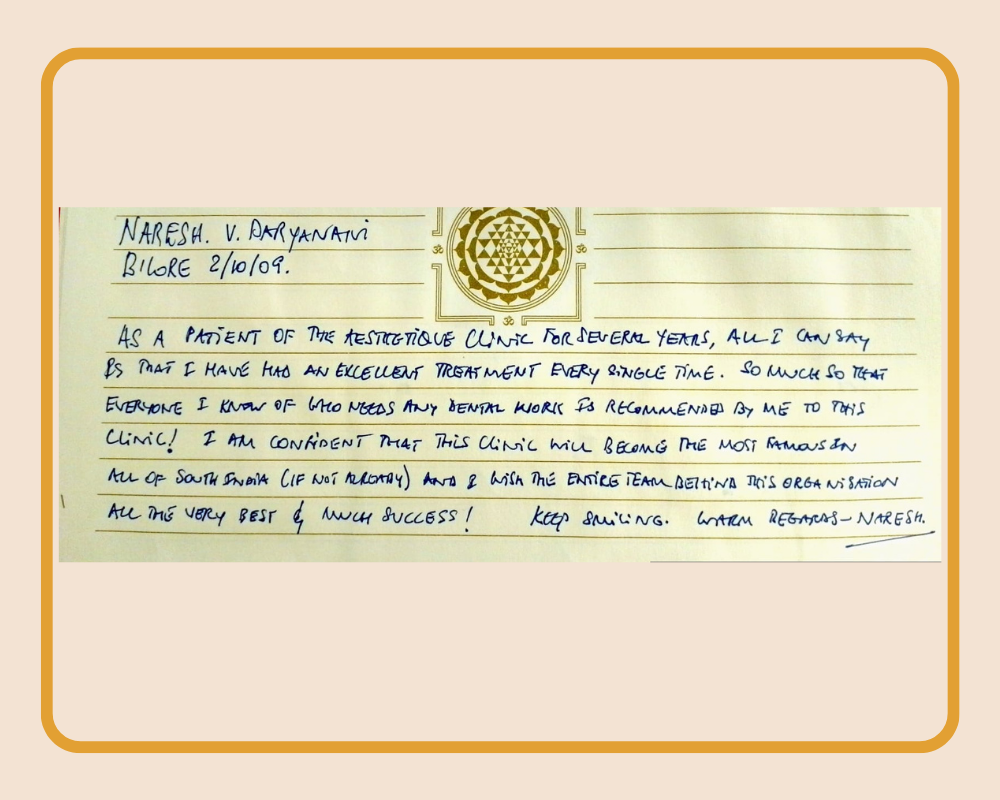 NARESH. V. DARYANANI
B'LORE 2/10/09.
AS A PATIENT OF THE AESTHETIQUE CLINIC FOR SEVERAL YEARS, ALL I CAN SAY
IS THAT I HAVE HAD AN EXCELLENT TREATMENT EVERY SINGLE TIME. SO MUCH SO THAT
EVERYONE I KNOW OF WHO NEEDS ANY DENTAL WORK IS RECOMMENDED BY ME TO THIS
CLINIC! I AM CONFIDENT THAT THIS CLINIC WILL BECOME THE MOST FAMOUS IN
ALL OF SOUTH INDIA (IF NOT ALREADY) AND I WISH THE ENTIRE TEAM BEHIND THIS ORGANISATION
ALL THE VERY BEST & MUCH SUCCESS! KEEP SMILING. WARM REGARDS - NARESH.
ॐ ॐ
ॐ